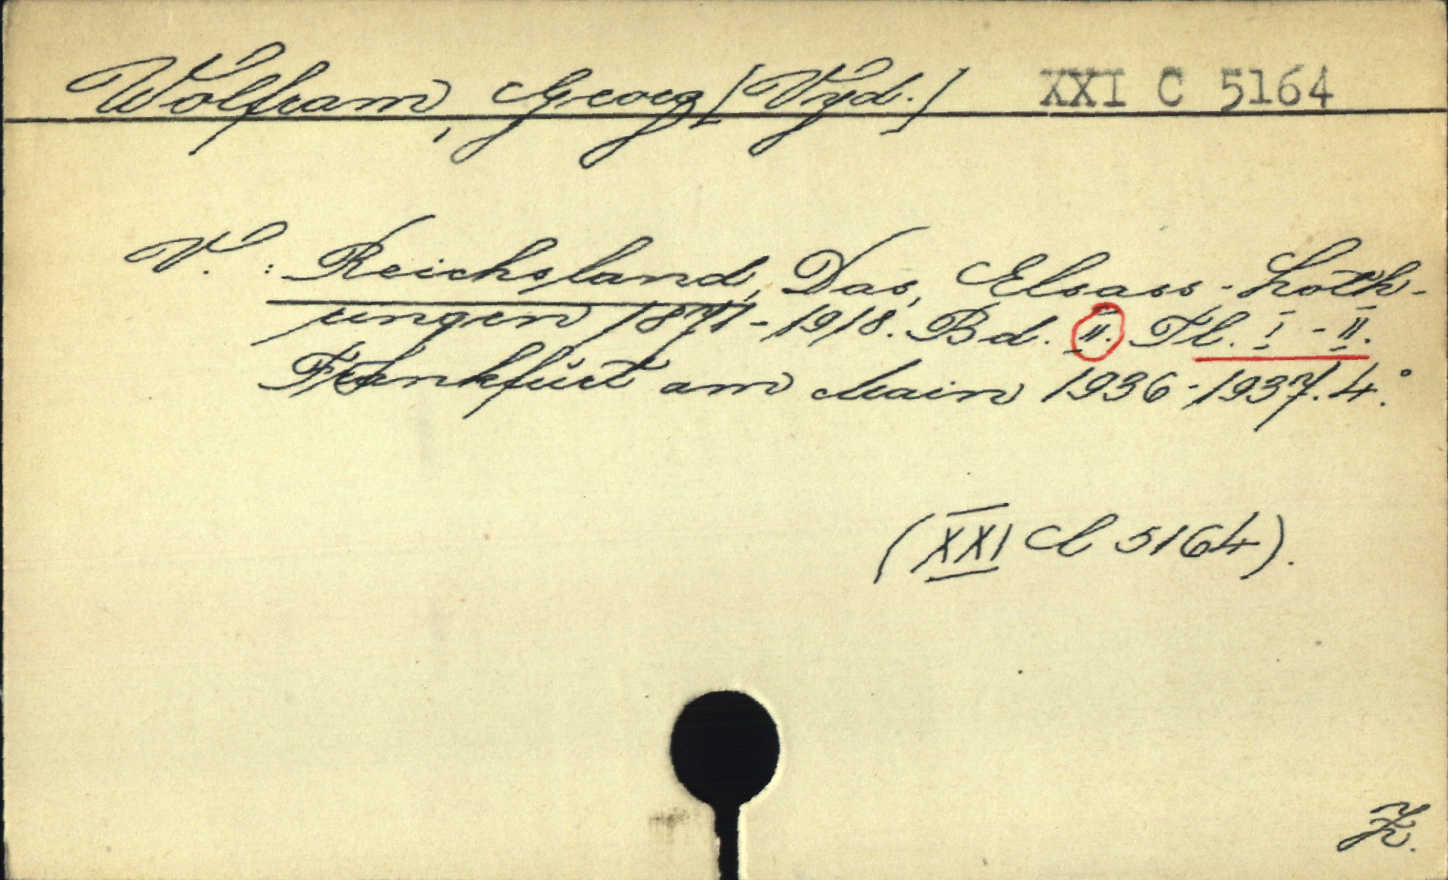 Wolfram, Georg [Vyd.] XXI C 5164
V.: Reichsland, Das, Elsass-Loth-
ringen 1871-1918. Bd. II. Tl. I-II.
Frankfurt am Main 1936-1937. 4.°
(XXI C 5164).